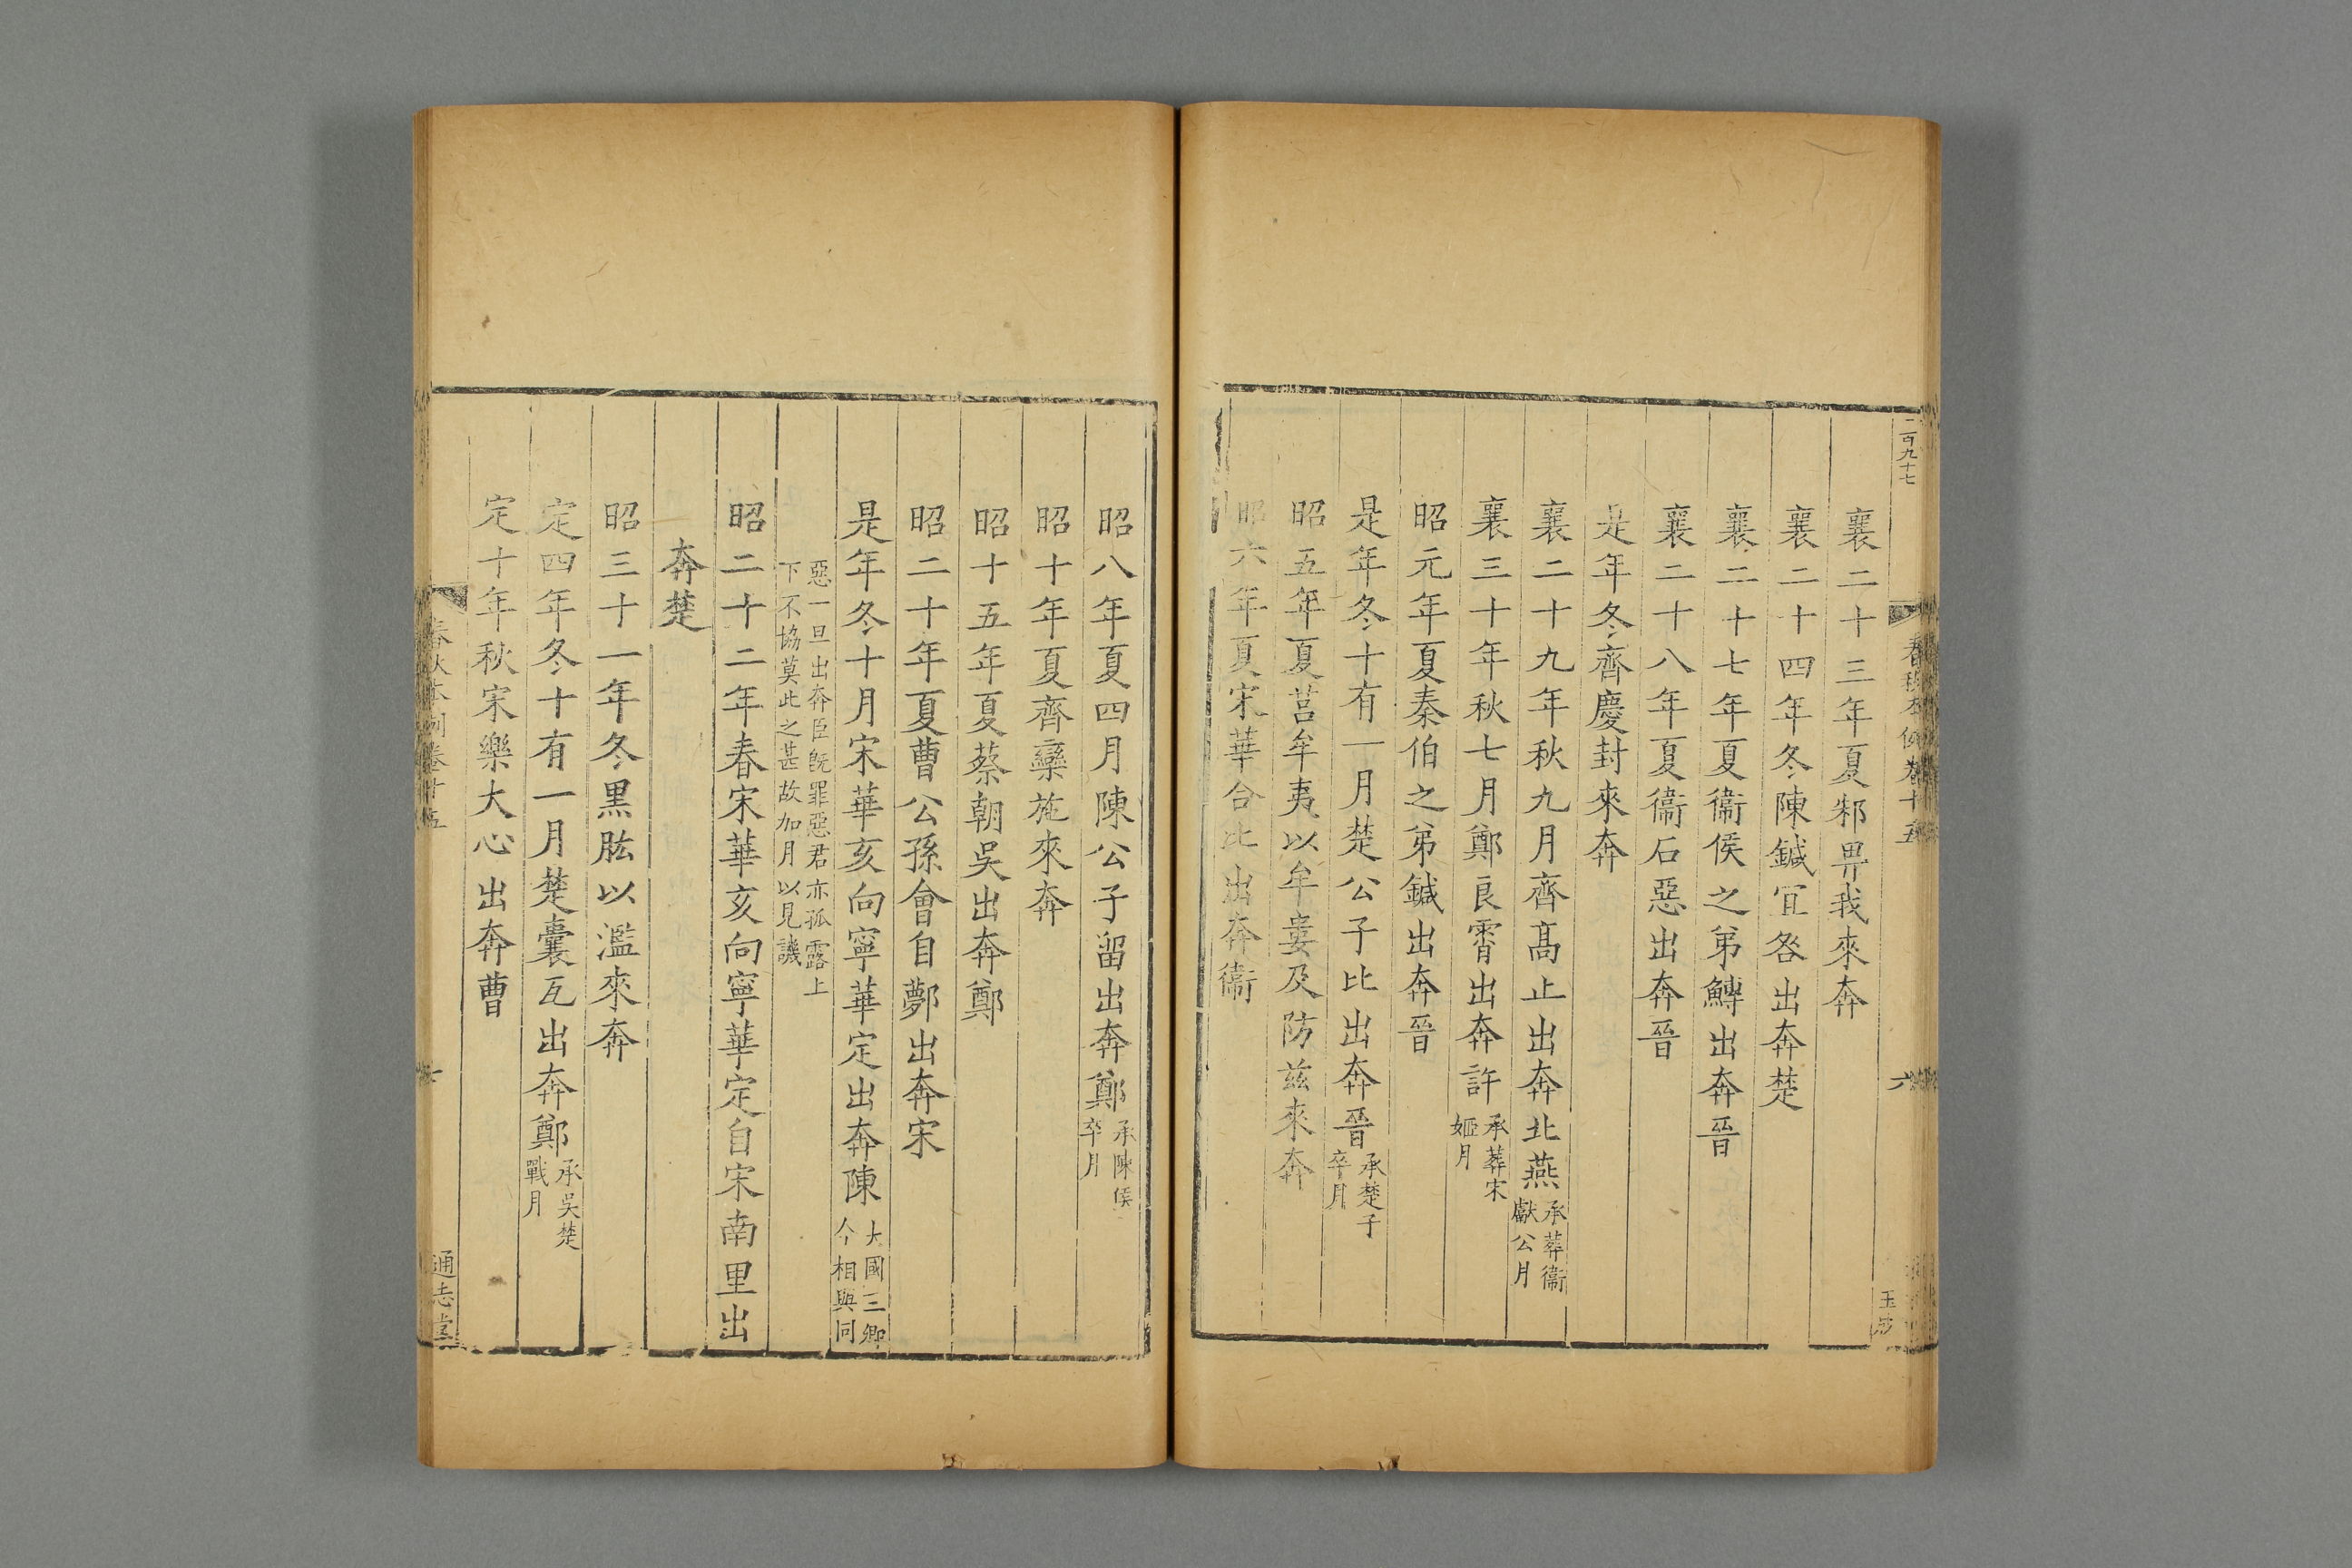 二百九十七
春秋本例卷十五
六
玉彡
襄二十三年夏邾畀我來奔
襄二十四年冬陳鍼宜咎出奔楚
襄二十七年夏衞侯之弟鱄出奔晉
襄二十八年夏衞石惡出奔晉
是年冬齊慶封來奔
襄二十九年秋九月齊髙止出奔北燕承葬衞獻公月
襄三十年秋七月鄭良霄出奔許承葬宋姬月
昭元年夏秦伯之弟鍼出奔晉
是年冬十有一月楚公子比出奔晉承楚子卒月
昭五年夏莒牟夷以牟婁及防茲來奔
昭六年夏宋華合比出奔衞
昭八年夏四月陳公子留出奔鄭承陳侯卒月
昭十年夏齊欒施來奔
昭十五年夏蔡朝吳出奔鄭
昭二十年夏曹公孫會自鄸出奔宋
是年冬十月宋華亥向寧華定出奔陳大國三卿今相與同
惡一旦出奔臣旣罪惡君亦孤露上下不協莫此之甚故加月以見譏
昭二十二年春宋華亥向寧華定自宋南里出
奔楚
昭三十一年冬黑肱以濫來奔
定四年冬十有一月楚囊瓦出奔鄭承吳楚戰月
定十年秋宋樂大心出奔曹
春秋本例卷十五
通志堂